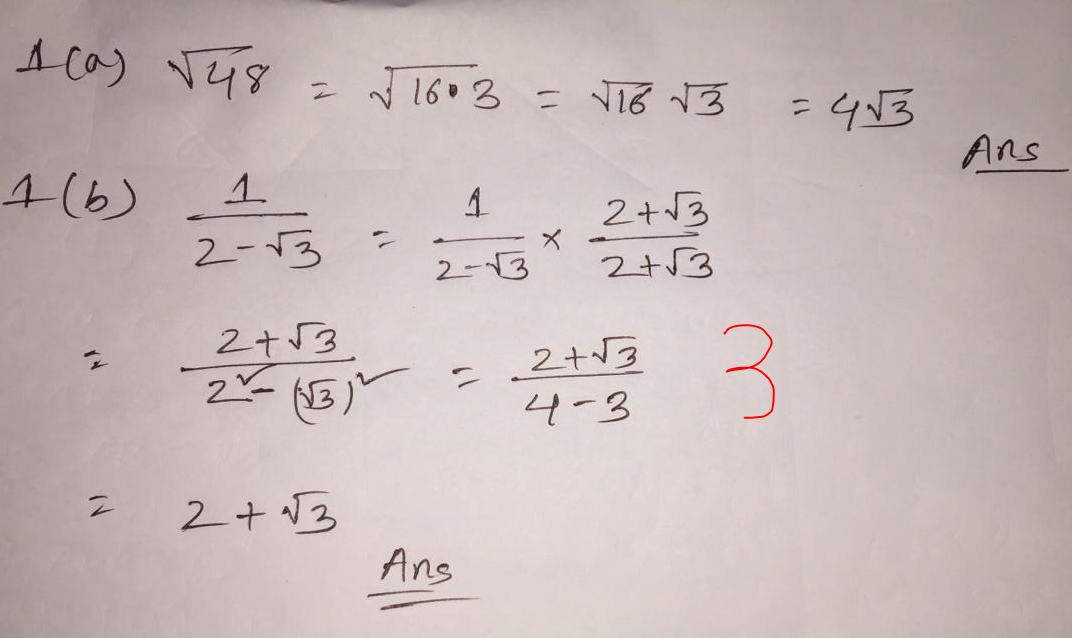 1(a) √48 = √16·3 = √16 √3 = 4√3
Ans
1(b) 1/(2-√3) = 1/(2-√3) × (2+√3)/(2+√3)
= (2+√3)/(2²-(√3)²) = (2+√3)/(4-3) 3
= 2+√3
Ans